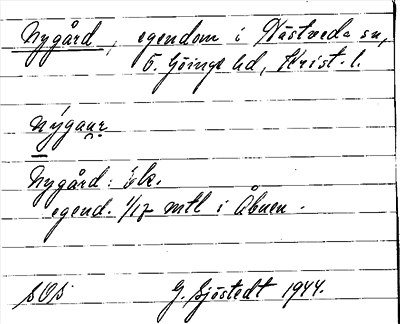 Nygård, egendom i Hästveda sn,
Ö. Göinge hd, Krist. l.
nýgaur
Nygård: Ek.
egend. 1/12 mtl i Åbuen.
SOS G. Sjöstedt 1944.